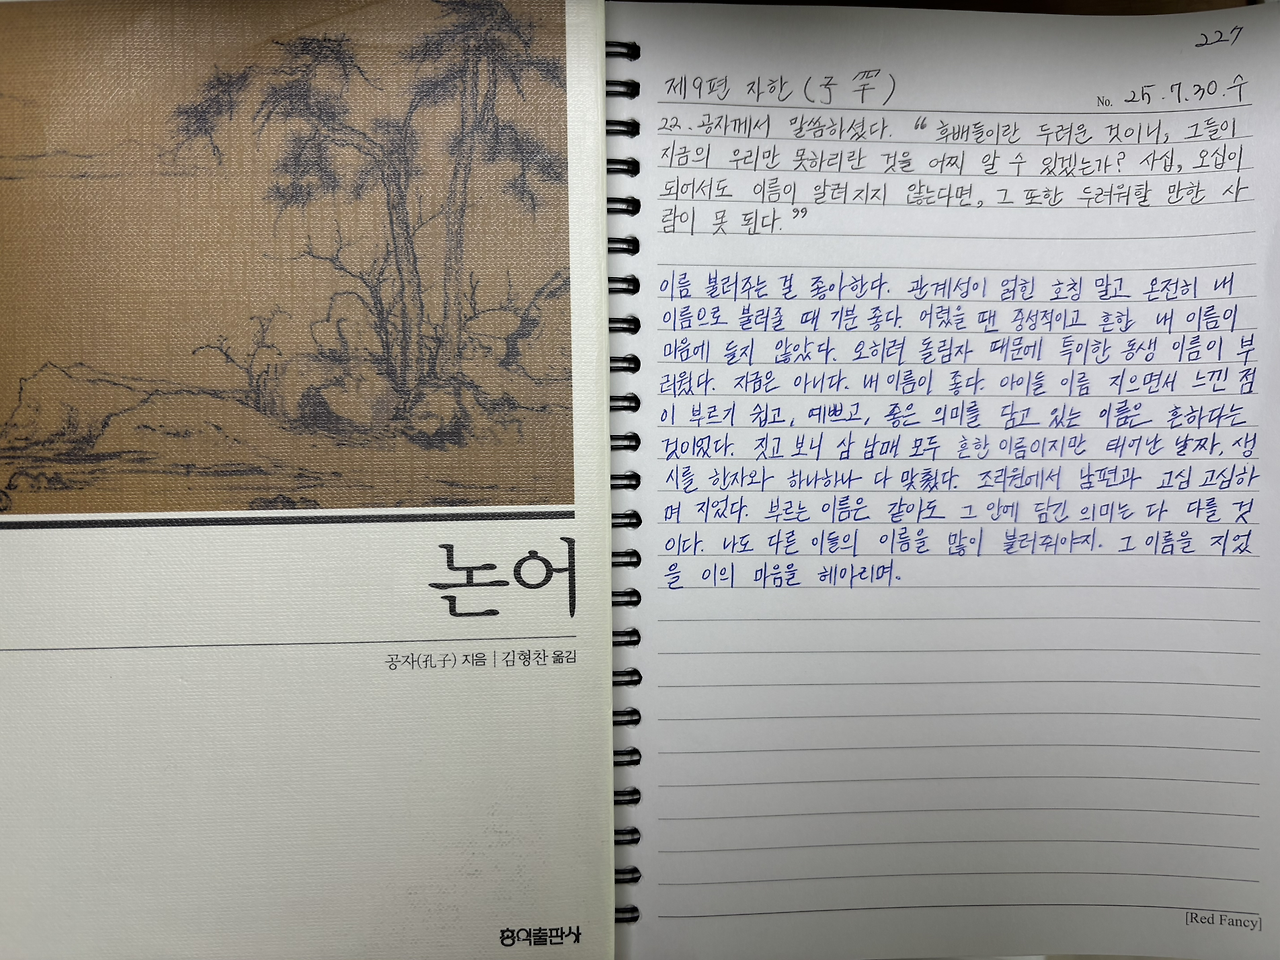 논어
공자(孔子) 지음 | 김형찬 옮김
홍익출판사
227
제9편 자한 (子罕)
No. 25.7.30.수
22. 공자께서 말씀하셨다. “후배들이란 두려운 것이니, 그들이
지금의 우리만 못하리란 것을 어찌 알 수 있겠는가? 사십, 오십이
되어서도 이름이 알려지지 않는다면, 그 또한 두려워할 만한 사
람이 못 된다.”
이름 불러주는 걸 좋아한다. 관계성이 얽힌 호칭 말고 온전히 내
이름으로 불러줄 때 기분 좋다. 어렸을 땐 중성적이고 흔한 내 이름이
마음에 들지 않았다. 오히려 돌림자 때문에 특이한 동생 이름이 부
러웠다. 지금은 아니다. 내 이름이 좋다. 아이들 이름 지으면서 느낀 점
이 부르기 쉽고, 예쁘고, 좋은 의미를 담고 있는 이름은 흔하다는
것이었다. 짓고 보니 삼 남매 모두 흔한 이름이지만 태어난 날짜, 생
시를 한자와 하나하나 다 맞췄다. 조리원에서 남편과 고심 고심하
며 지었다. 부르는 이름은 같아도 그 안에 담긴 의미는 다 다를 것
이다. 나도 다른 이들의 이름을 많이 불러줘야지. 그 이름을 지었
을 이의 마음을 헤아리며.
[Red Fancy]